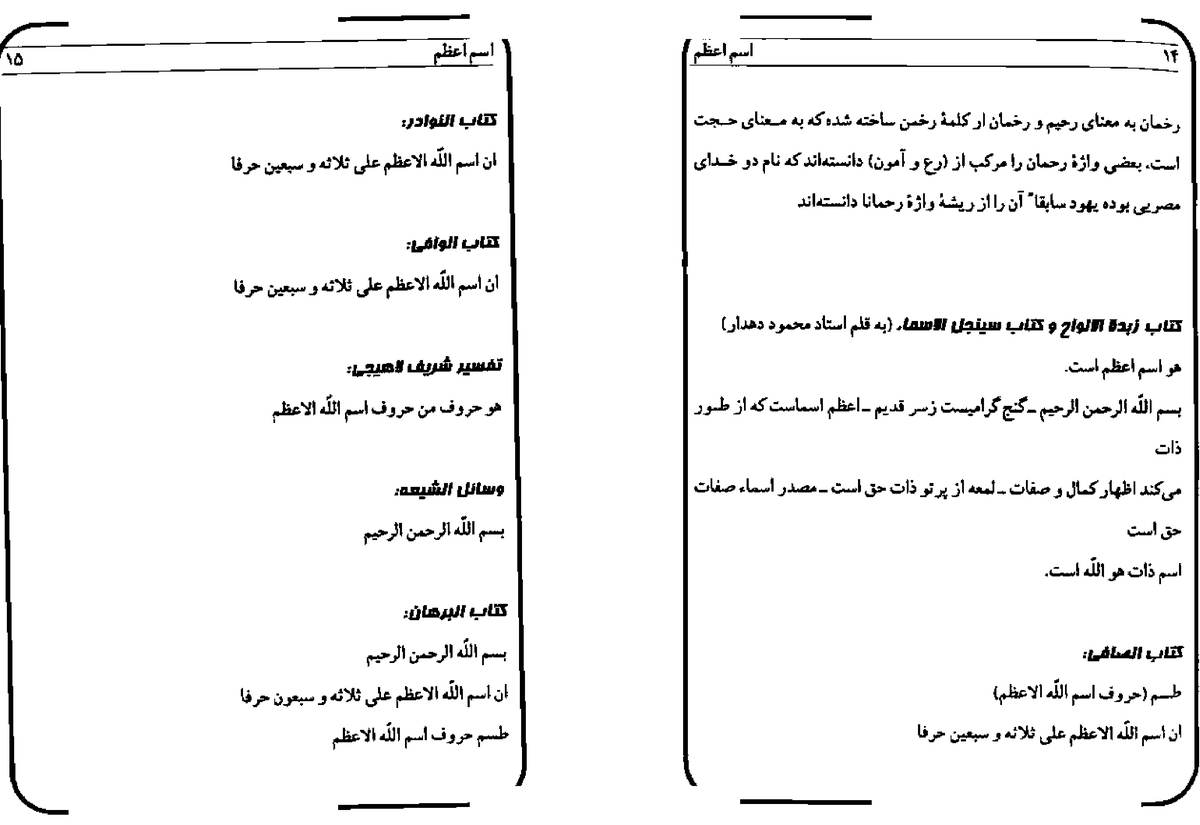 ۱۴
اسم اعظم
رخمان به معنای رحیم و رخمان از کلمهٔ رخمن ساخته شده که به معنای حجت
است. بعضی واژهٔ رحمان را مرکب از (رع و آمون) دانسته‌اند که نام دو خدای
مصریی بوده یهود سابقاً آن را از ریشهٔ واژهٔ رحمانا دانسته‌اند
کتاب زبدة الالواح و کتاب سینجل الاسماء. (به قلم استاد محمود دهدار)
هو اسم اعظم است.
بسم اللّه الرحمن الرحیم ـ گنج گرامیست زسر قدیم ـ اعظم اسماست که از طور
ذات
می‌کند اظهار کمال و صفات ـ لمعه از پرتو ذات حق است ـ مصدر اسماء صفات
حق است
اسم ذات هو اللّه است.
کتاب الصافی:
طسم (حروف اسم اللّه الاعظم)
ان اسم اللّه الاعظم علی ثلاثه و سبعین حرفا
اسم اعظم
۱۵
کتاب النوادر:
ان اسم اللّه الاعظم علی ثلاثه و سبعین حرفا
کتاب الوافی:
ان اسم اللّه الاعظم علی ثلاثه و سبعین حرفا
تفسیر شریف لاهیجی:
هو حروف من حروف اسم اللّه الاعظم
وسائل الشیعه:
بسم اللّه الرحمن الرحیم
کتاب البرهان:
بسم اللّه الرحمن الرحیم
ان اسم اللّه الاعظم علی ثلاثه و سبعون حرفا
طسم حروف اسم اللّه الاعظم